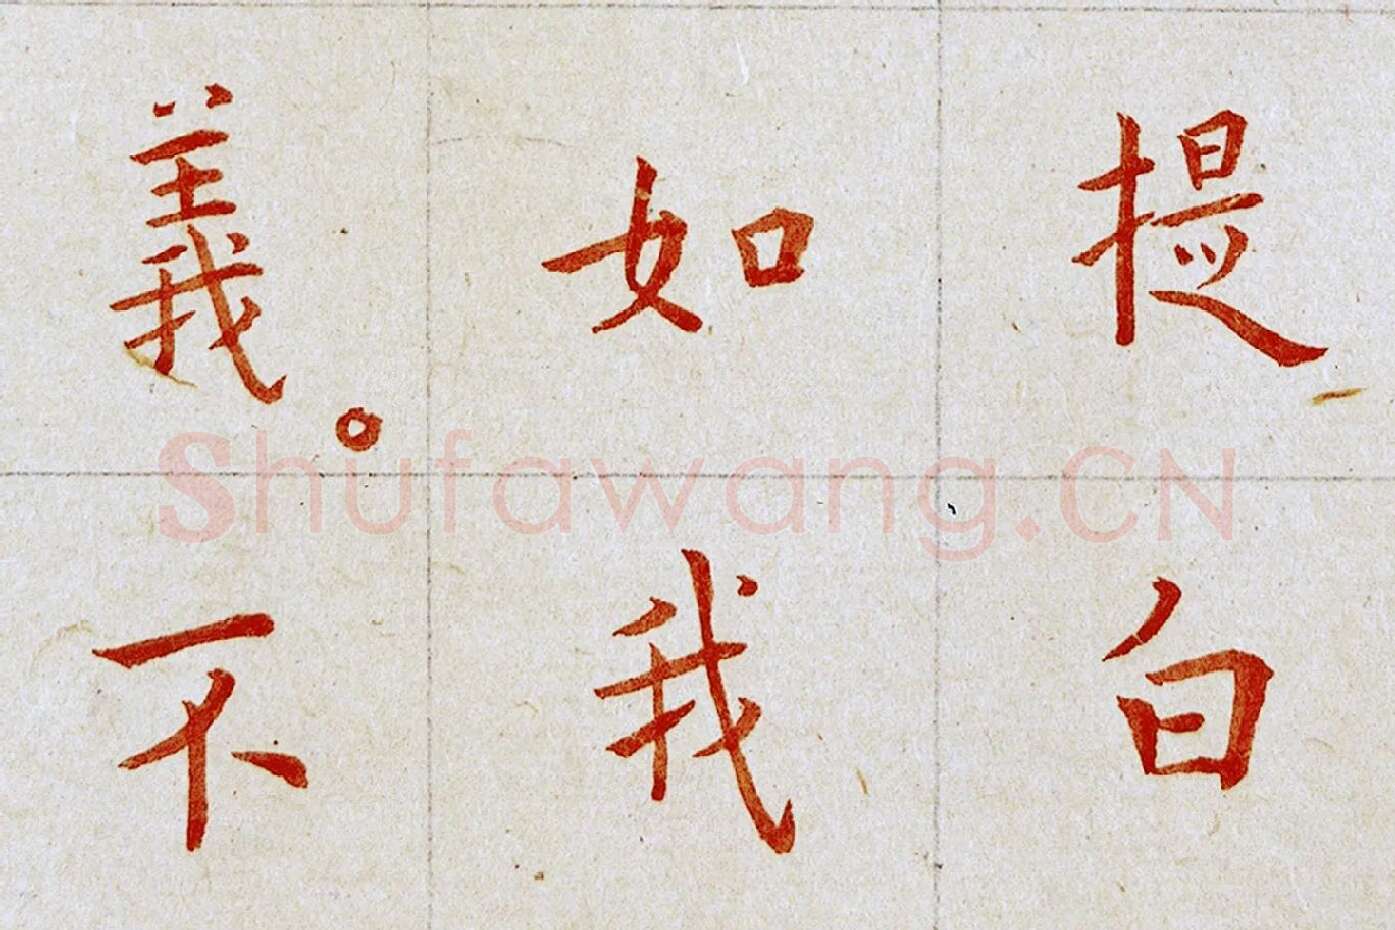 提白
如我
義。不
Shufawang.CN